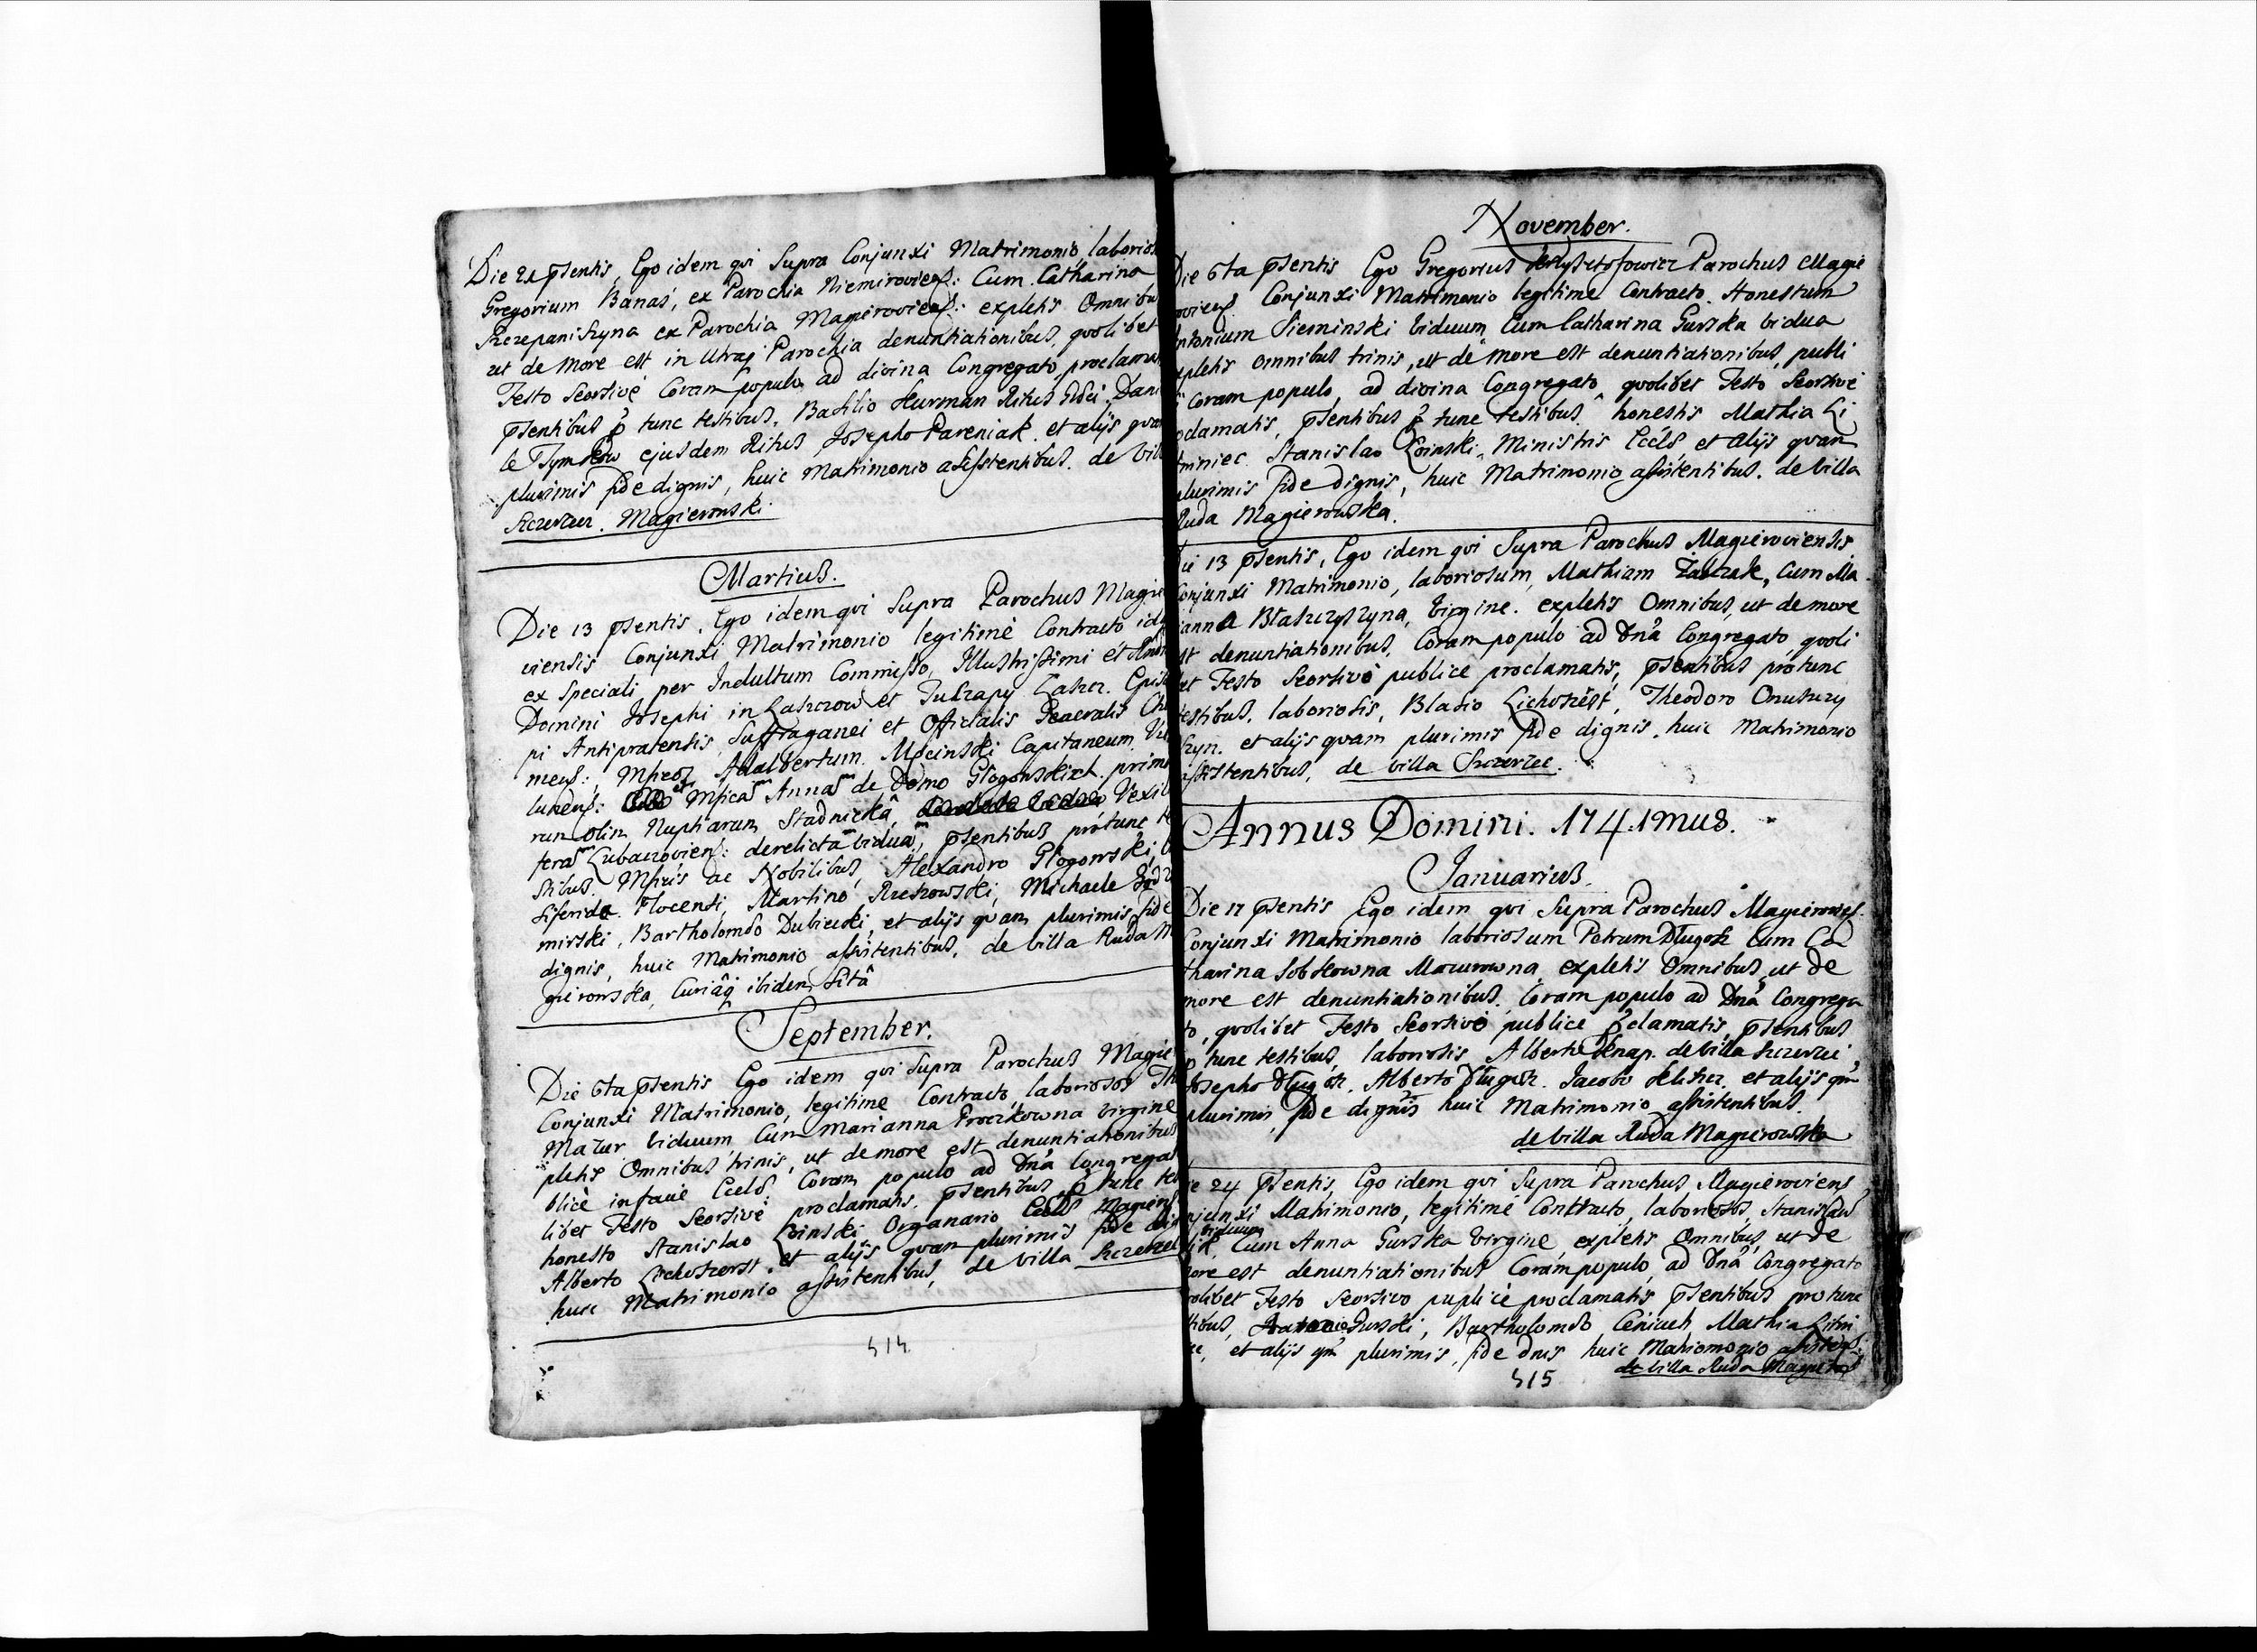 Die 21 psentis, Ego idem qui Supra Conjunxi Matrimonio, laborios
Gregorium Banaś, ex Parochia Niemirovien: Cum Catharina
Szczepaniszyna ex Parochia Magierovien: expletis Omnibu
ut de More est in Utraq Parochia denuntiationibus, quolibet
Festo Seorsivè Coram populo ad divina Congregato, proclama
psentibus p tunc testibus, Basilio Hurman Ritus Gdei, Dani
le Tymkow ejusdem Ritus Josepho Pareniak et alijs quam
plurimis fide dignis, huic Matrimonio assistentibus. de vill
Szczerzec. Magierowski.
Martius.
Die 13 psentis, Ego idem qui Supra Parochus Magie
viensis Conjunxi Matrimonio legitimè Contracto id
ex Speciali per Indultum Commisso, Illustrissimi et
Domini Josephi in Łaszczow et Tuczapy Łaszcz. Epis
pi Antipratensis, Suffraganei et Officialis Generalis Ch
mens: Adalbertum Męcinski Capitaneum
lunens: Annam de Domo Głogowskich prim
rum olim Nuptiarum Stadnicką, Vexil
feram Lubaczovien: derelictam viduam, psentibus protunc te
stibus. ac Nobilibus, Alexandro Głogowski,
siferida Plocensi, Martino Rzeszowski, Michaele
mirski, Bartholomeo Dubiecki, et alijs quam plurimis fide
dignis, huic Matrimonio assistentibus, de villa Ruda M
gierowska, Curiâq ibidem Sitâ
September.
Die 6ta psentis Ego idem qui Supra Parochus Magie
Conjunxi Matrimonio, legitime Contracto, laboriosos Th
Mazur viduum Cum Marianna Proczkowna virgine
pletis Omnibus trinis, ut de more est denuntiationibus
blicè in facie Eccls Coram populo ad Dna Congregat
libet Festo Seorsivè proclamatis. psentibus p tunc tes
honesto Stanislao Łoinski Organario Eccls Magierov
Alberto Lichoszerst, et alijs quam plurimis fide dig
huic Matrimonio assistentibus, de villa Szczerzec
514
November.
Die 6ta psentis Ego Gregorius Krzysztofowicz Parochus Magie
roviens Conjunxi Matrimonio legitime Contracto. Honestum
ntonium Sieminski viduum Cum Catharina Gurska vidua
xpletis Omnibus trinis, ut de more est denuntiationibus, publi
Coram populo, ad divina Congregato quolibet Festo Seorsivè
oclamatis, psentibus p tunc testibus honestis Mathia Li
tminiec Stanislao Łoinski Ministris Eccls et Alijs quam
plurimis fide dignis, huic Matrimonio assistentibus. de villa
Ruda Magierowska.
Die 13 psentis, Ego idem qui Supra Parochus Magieroviensis
Conjunxi Matrimonio, laboriosum, Mathiam Cum Ma
ianna Błaszczyszyna, Virgine. expletis Omnibus, ut de more
est denuntiationibus, Coram populo ad Dna Congregato quoli
et Festo Seorsivè publice proclamatis, psentibus protunc
estibus, laboriosis, Blasio Lichoszest, Theodoro Onuszzy
szyn. et alijs quam plurimis fide dignis. huic Matrimonio
assistentibus, de villa Szczerzec.
Annus Domini. 1741mus.
Januarius.
Die 17 psentis Ego idem qui Supra Parochus Magierovies
Conjunxi Matrimonio laboriosum Petrum Długosz Cum Ca
tharina Sobkowna Mazurowna, expletis Omnibus, ut de
more est denuntiationibus, Coram populo ad Dna Congrega
to, quolibet Festo Seorsivè publice pclamatis, psentibus
p tunc testibus, laboriosis Alberto Knap. de villa Szczerzec,
Josepho Długosz, Alberto Długosz. Jacobo et alijs qm
plurimis, fide dignis huic Matrimonio assistentibus.
de villa Ruda Magierowska
ie 24 psentis, Ego idem qui Supra Parochus Magieroviens
njunxi Matrimonio, legitimè Contracto, laboriosos Stanislau
viduum
Cum Anna Gurska Virgine expletis Omnibus, ut de
more est denuntiationibus Coram populo, ad Dna Congregato
uolibet Festo Seorsivo puplicè proclamatis psentibus protunc
tibus, Antonio Gurski, Bartholomeo Ceniuch Mathia Litmi
ec, et alijs qm plurimis, fide dnis huic Matriomonio assistens:
de villa Ruda Magierow
515